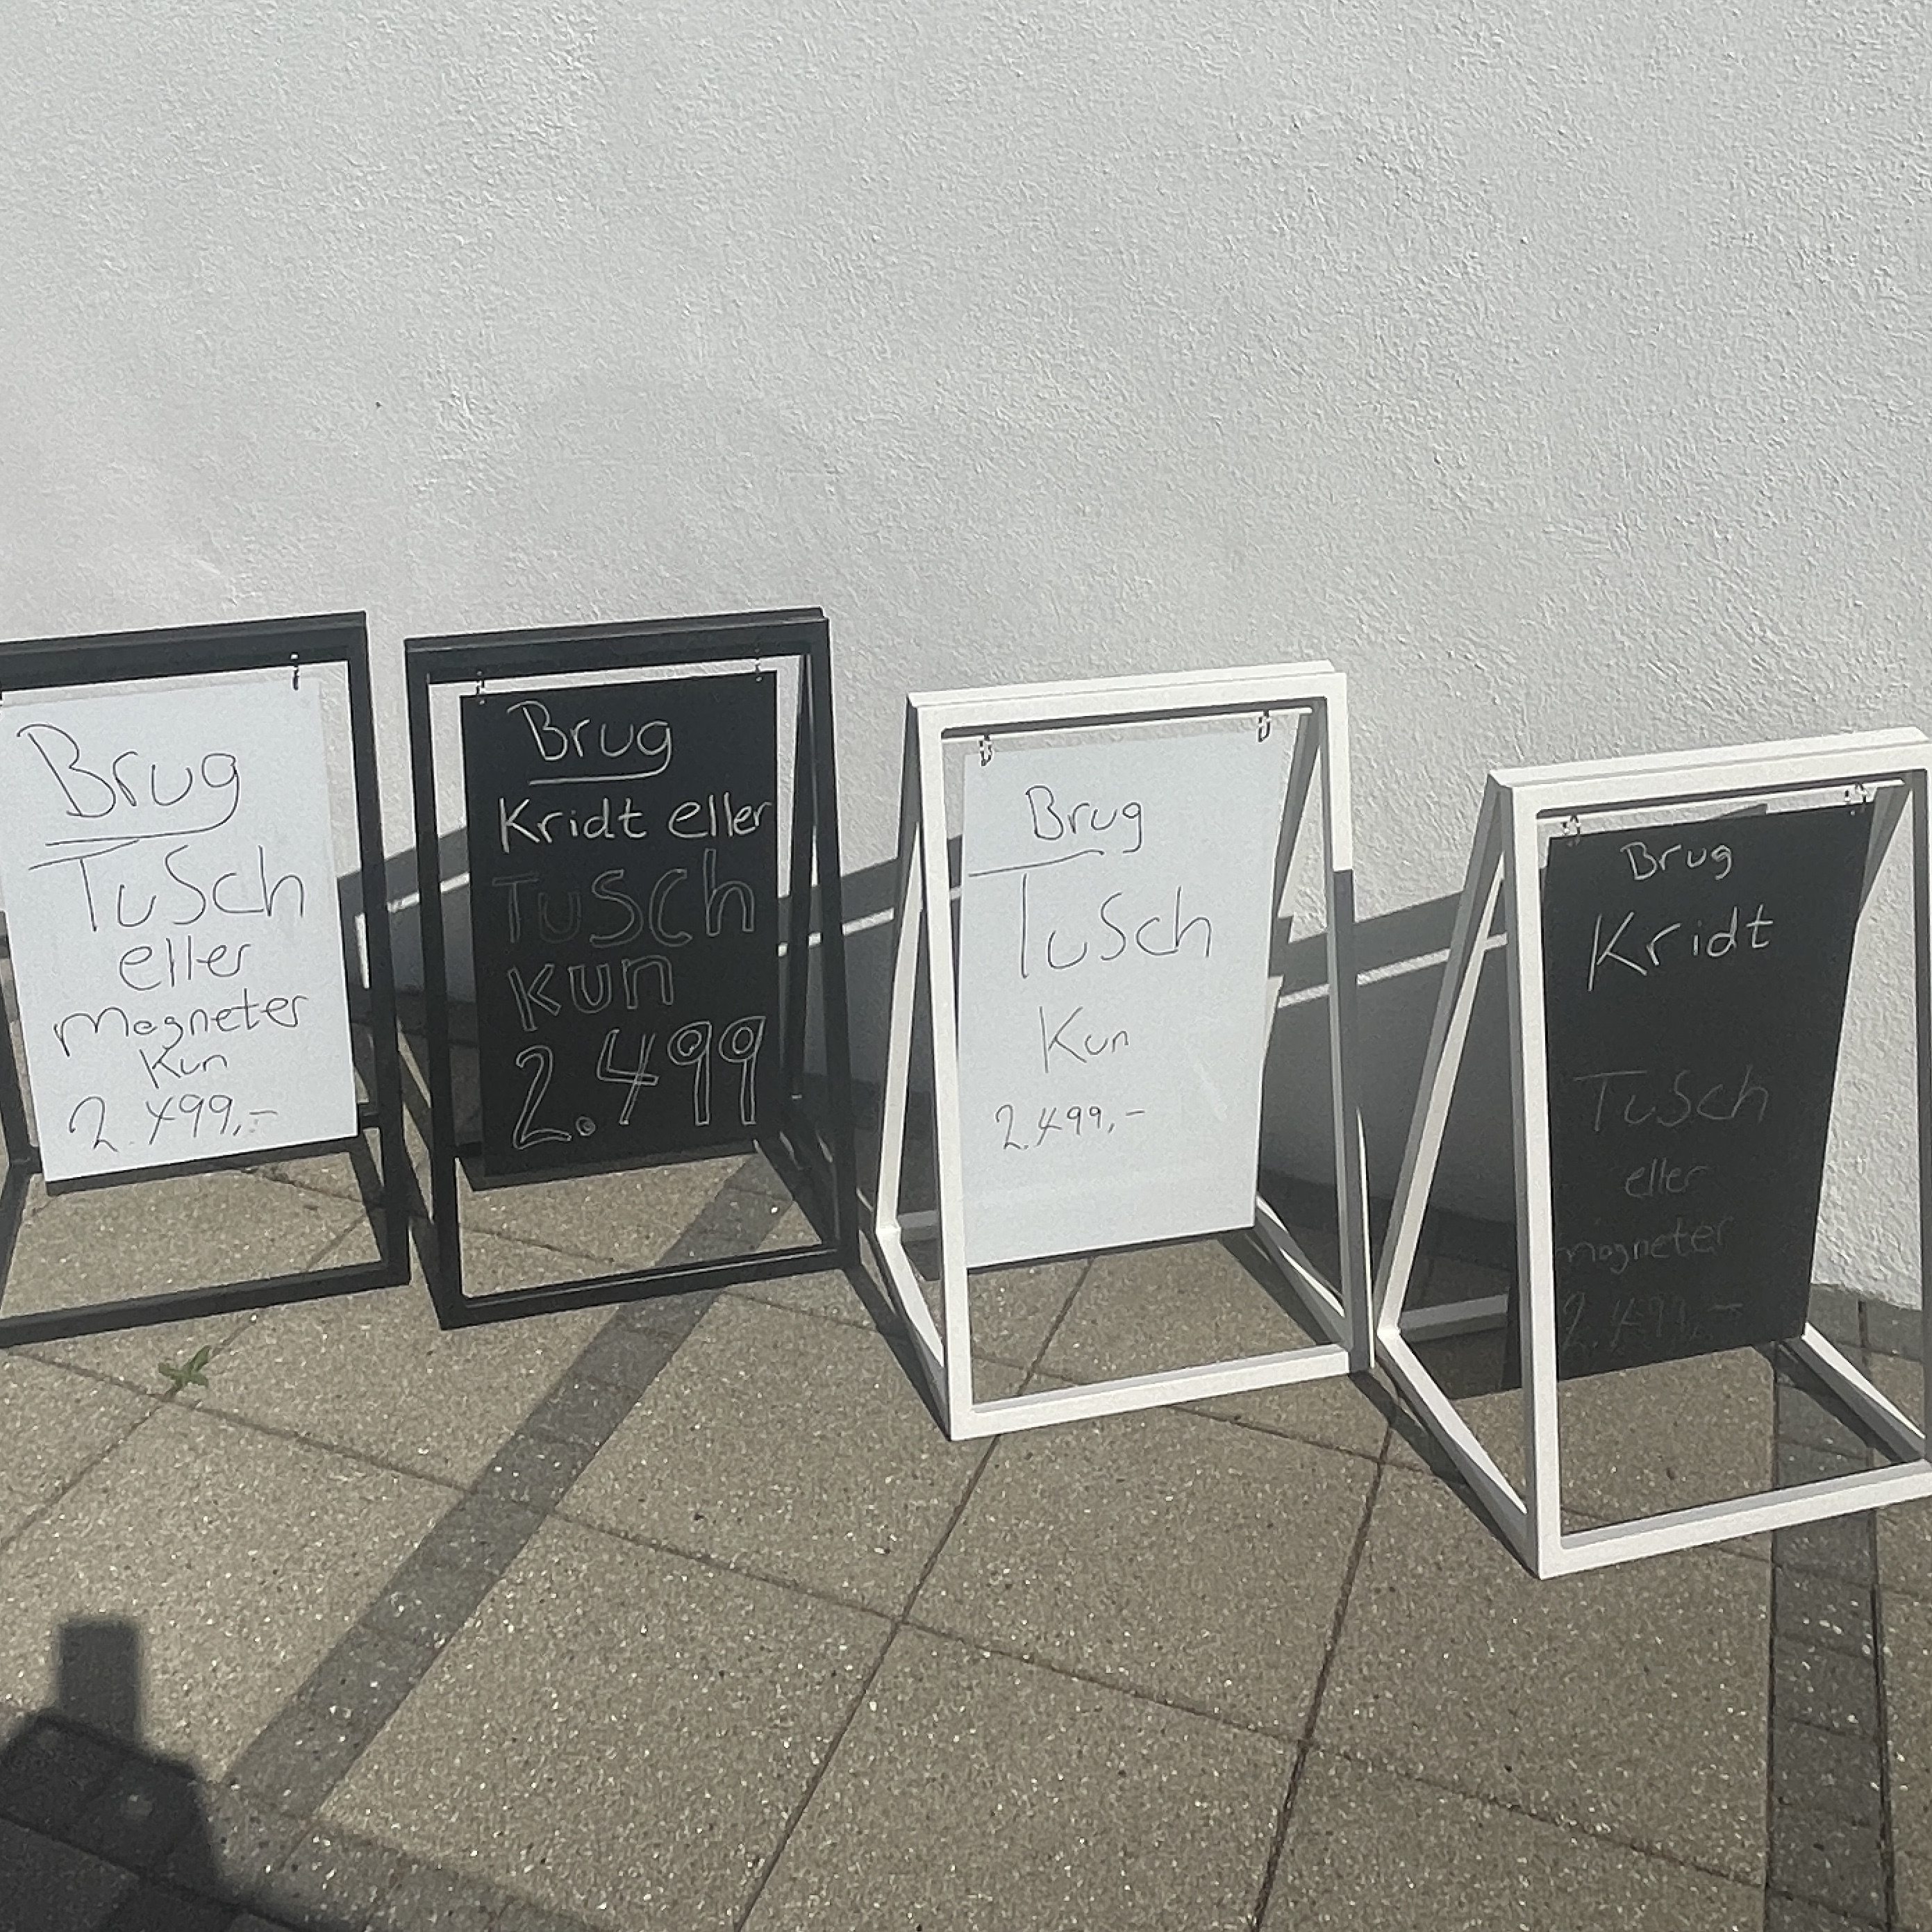 Brug
Tusch
eller
Magneter
Kun
2.499,-
Brug
Kridt eller
Tusch
kun
2.499
Brug
Tusch
Kun
2.499,-
Brug
Kridt
Tusch
eller
magneter
2.499,-